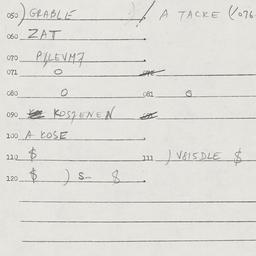 050 ) GRABLE / A TACKE (/076
060 ZAT
070 P/LEVM7
071 O
080 O 081 O
090 KOSZENEN
100 A KOSE
110 $ 111 ) V815DLE $
120 $ ) S- 8